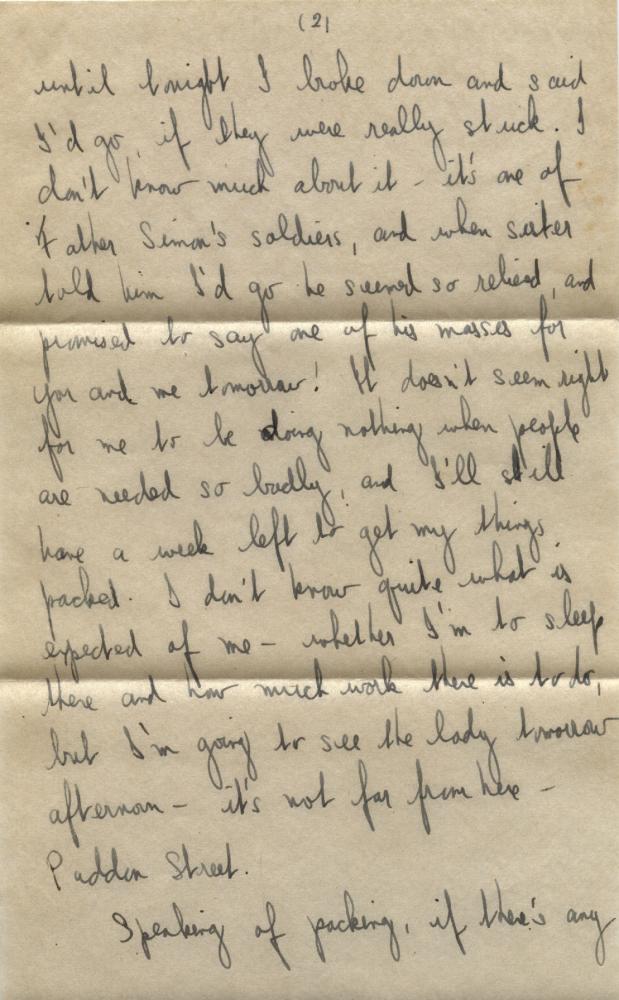 (2)
until tonight I broke down and said
I'd go, if they were really stuck. I
don't know much about it - it's one of
Father Simon's soldiers, and when sister
told him I'd go he seemed so relieved, and
promised to say one of his masses for
you and me tomorrow! It doesn't seem right
for me to be doing nothing when people
are needed so badly, and I'll still
have a week left to get my things
packed. I don't know quite what is
expected of me - whether I'm to sleep
there and how much work there is to do,
but I'm going to see the lady tomorrow
afternoon - it's not far from here -
Paddon Street.
Speaking of packing, if there's any